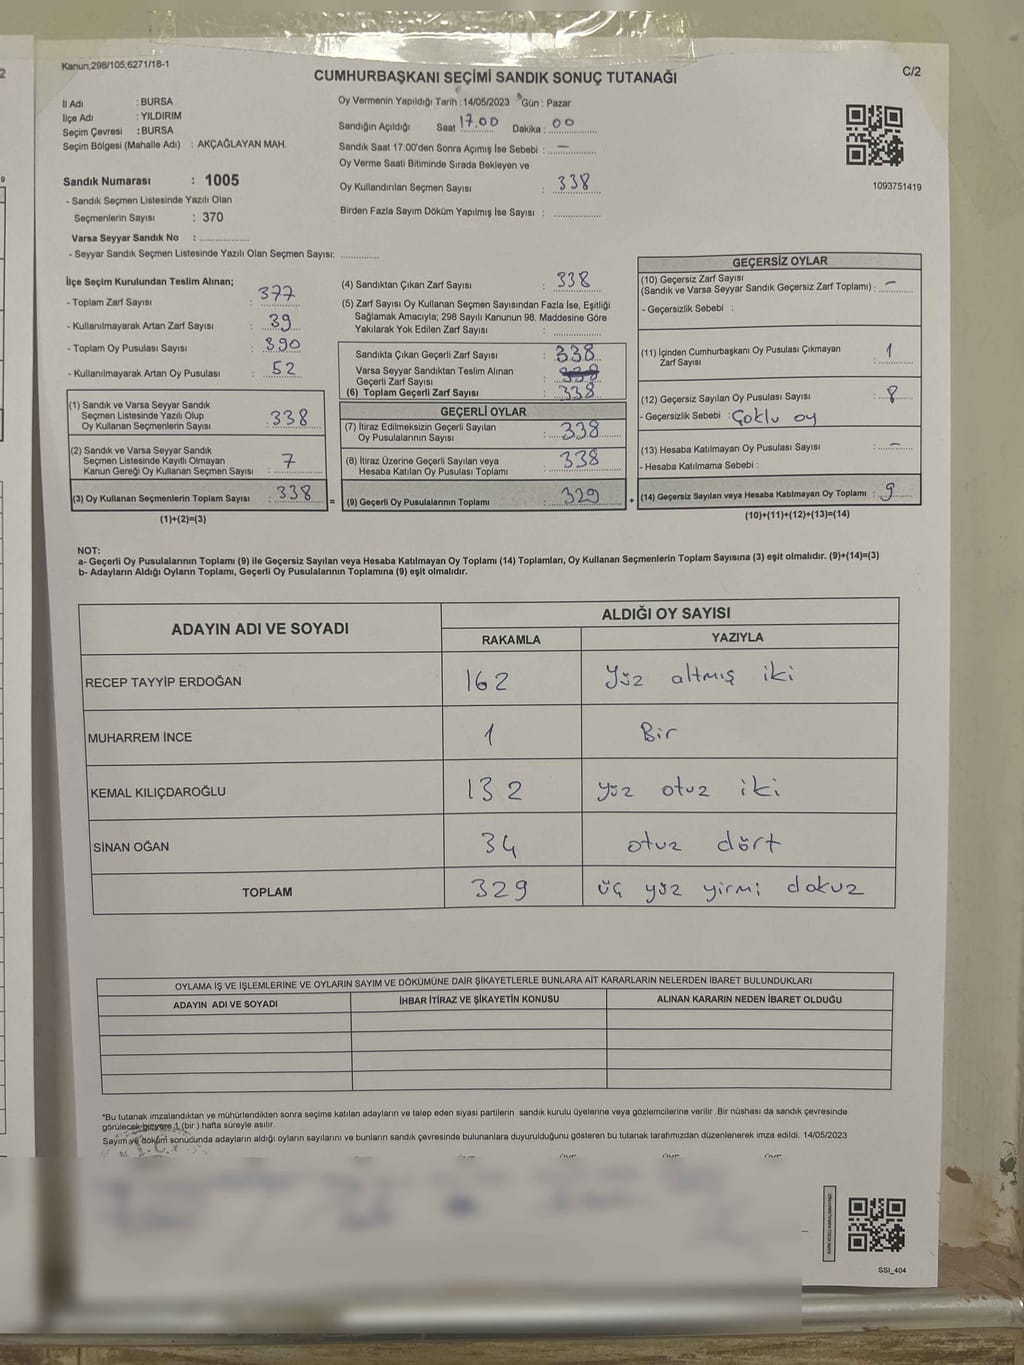 Kanun;298/105,6271/18-1
C/2
CUMHURBAŞKANI SEÇİMİ SANDIK SONUÇ TUTANAĞI
İl Adı : BURSA
İlçe Adı : YILDIRIM
Seçim Çevresi : BURSA
Seçim Bölgesi (Mahalle Adı) : AKÇAĞLAYAN MAH.
Sandık Numarası : 1005
- Sandık Seçmen Listesinde Yazılı Olan
Seçmenlerin Sayısı : 370
Varsa Seyyar Sandık No : ..............
- Seyyar Sandık Seçmen Listesinde Yazılı Olan Seçmen Sayısı: ............
Oy Vermenin Yapıldığı Tarih :14/05/2023 Gün : Pazar
Sandığın Açıldığı Saat 17.00 Dakika : 00
Sandık Saat 17:00'den Sonra Açımış İse Sebebi : —
Oy Verme Saati Bitiminde Sırada Bekleyen ve
Oy Kullandırılan Seçmen Sayısı : 338
Birden Fazla Sayım Döküm Yapılmış İse Sayısı : ..............
1093751419
İlçe Seçim Kurulundan Teslim Alınan;
- Toplam Zarf Sayısı : 377
- Kullanılmayarak Artan Zarf Sayısı : 39
- Toplam Oy Pusulası Sayısı : 390
- Kullanılmayarak Artan Oy Pusulası : 52
(1) Sandık ve Varsa Seyyar Sandık
Seçmen Listesinde Yazılı Olup
Oy Kullanan Seçmenlerin Sayısı : 338
(2) Sandık ve Varsa Seyyar Sandık
Seçmen Listesinde Kayıtlı Olmayan
Kanun Gereği Oy Kullanan Seçmen Sayısı : 7
(3) Oy Kullanan Seçmenlerin Toplam Sayısı : 338
(1)+(2)=(3)
=
(4) Sandıktan Çıkan Zarf Sayısı : 338
(5) Zarf Sayısı Oy Kullanan Seçmen Sayısından Fazla İse, Eşitliği
Sağlamak Amacıyla; 298 Sayılı Kanunun 98. Maddesine Göre
Yakılarak Yok Edilen Zarf Sayısı : ..............
Sandıkta Çıkan Geçerli Zarf Sayısı : 338
Varsa Seyyar Sandıktan Teslim Alınan
Geçerli Zarf Sayısı : 338
(6) Toplam Geçerli Zarf Sayısı : 338
GEÇERLİ OYLAR
(7) İtiraz Edilmeksizin Geçerli Sayılan
Oy Pusulalarının Sayısı : 338
(8) İtiraz Üzerine Geçerli Sayılan veya
Hesaba Katılan Oy Pusulası Toplamı : 338
(9) Geçerli Oy Pusulalarının Toplamı : 329
+
GEÇERSİZ OYLAR
(10) Geçersiz Zarf Sayısı
(Sandık ve Varsa Seyyar Sandık Geçersiz Zarf Toplamı) : —
- Geçersizlik Sebebi :
(11) İçinden Cumhurbaşkanı Oy Pusulası Çıkmayan
Zarf Sayısı : 1
(12) Geçersiz Sayılan Oy Pusulası Sayısı : 8
- Geçersizlik Sebebi : Çoklu oy
(13) Hesaba Katılmayan Oy Pusulası Sayısı : —
- Hesaba Katılmama Sebebi :
(14) Geçersiz Sayılan veya Hesaba Katılmayan Oy Toplamı : 9
(10)+(11)+(12)+(13)=(14)
NOT:
a- Geçerli Oy Pusulalarının Toplamı (9) ile Geçersiz Sayılan veya Hesaba Katılmayan Oy Toplamı (14) Toplamları, Oy Kullanan Seçmenlerin Toplam Sayısına (3) eşit olmalıdır. (9)+(14)=(3)
b- Adayların Aldığı Oyların Toplamı, Geçerli Oy Pusulalarının Toplamına (9) eşit olmalıdır.
ADAYIN ADI VE SOYADI
ALDIĞI OY SAYISI
RAKAMLA YAZIYLA
RECEP TAYYİP ERDOĞAN 162 Yüz altmış iki
MUHARREM İNCE 1 Bir
KEMAL KILIÇDAROĞLU 132 yüz otuz iki
SİNAN OĞAN 34 otuz dört
TOPLAM 329 üç yüz yirmi dokuz
OYLAMA İŞ VE İŞLEMLERİNE VE OYLARIN SAYIM VE DÖKÜMÜNE DAİR ŞİKAYETLERLE BUNLARA AİT KARARLARIN NELERDEN İBARET BULUNDUKLARI
ADAYIN ADI VE SOYADI İHBAR İTİRAZ VE ŞİKAYETİN KONUSU ALINAN KARARIN NEDEN İBARET OLDUĞU
*Bu tutanak imzalandıktan ve mühürlendikten sonra seçime katılan adayların ve talep eden siyasi partilerin sandık kurulu üyelerine veya gözlemcilerine verilir .Bir nüshası da sandık çevresinde
görülecek bir yere 1 (bir ) hafta süreyle asılır.
Sayım ve döküm sonucunda adayların aldığı oyların sayılarını ve bunların sandık çevresinde bulunanlara duyurulduğunu gösteren bu tutanak tarafımızdan düzenlenerek imza edildi. 14/05/2023
SSI_404